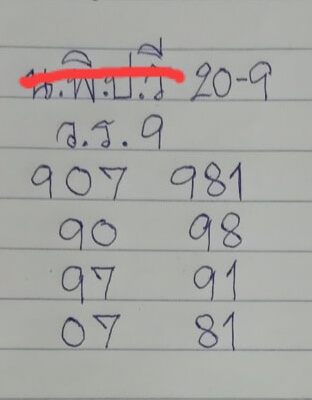 น.พิ.ป.วี 20-9
จ.ร. 9
907 981
90 98
97 91
07 81